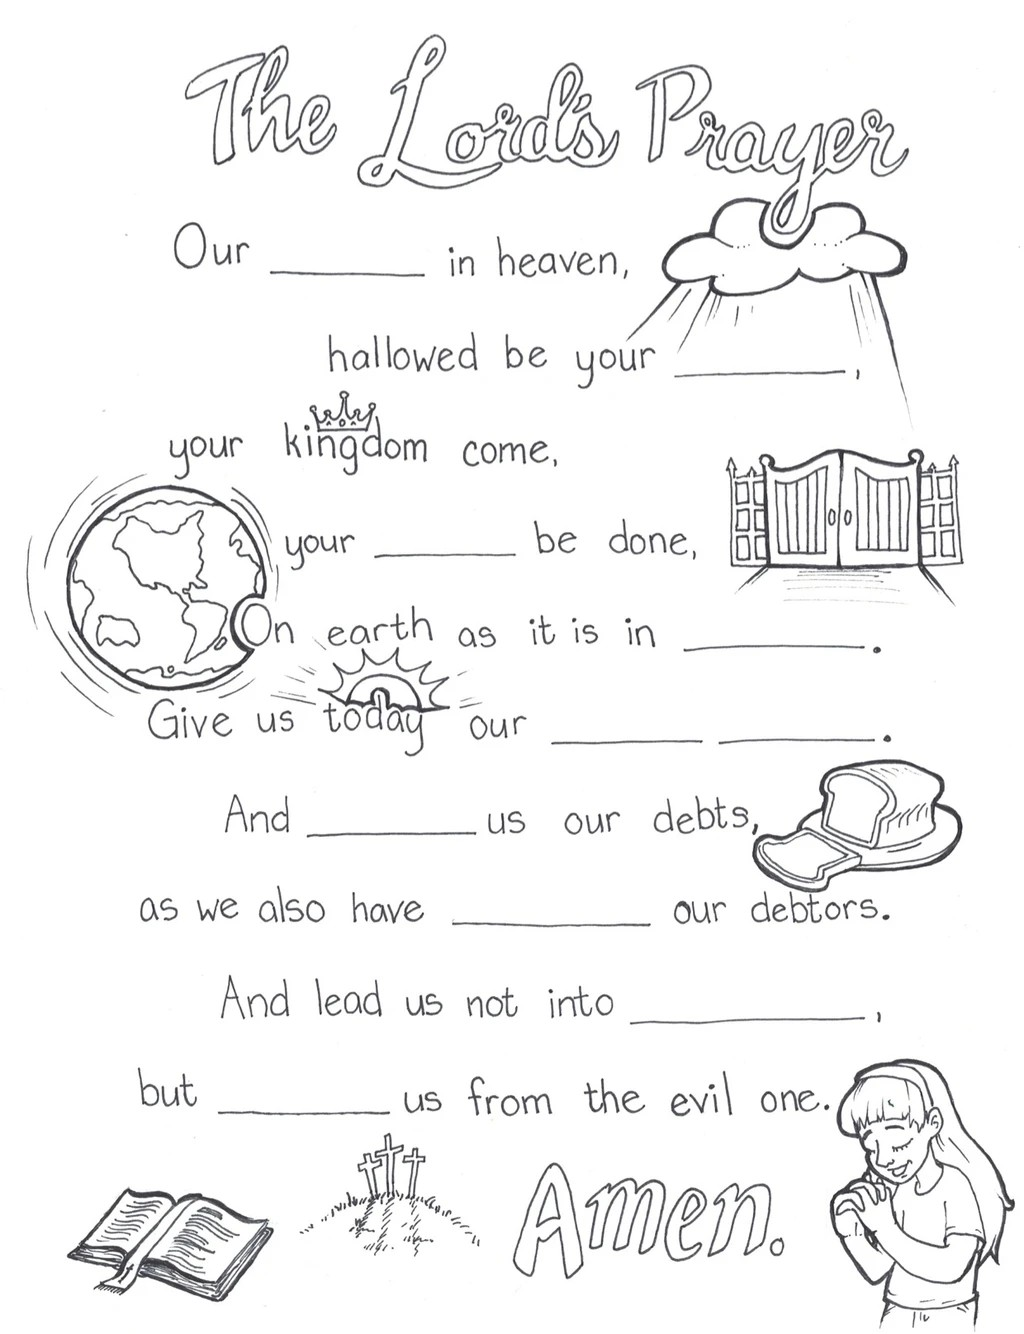 The Lord's Prayer
Our ________ in heaven,
hallowed be your ________,
your kingdom come,
your ________ be done,
On earth as it is in ________.
Give us today our ________ ________.
And ________ us our debts,
as we also have ________ our debtors.
And lead us not into ________,
but ________ us from the evil one.
Amen.